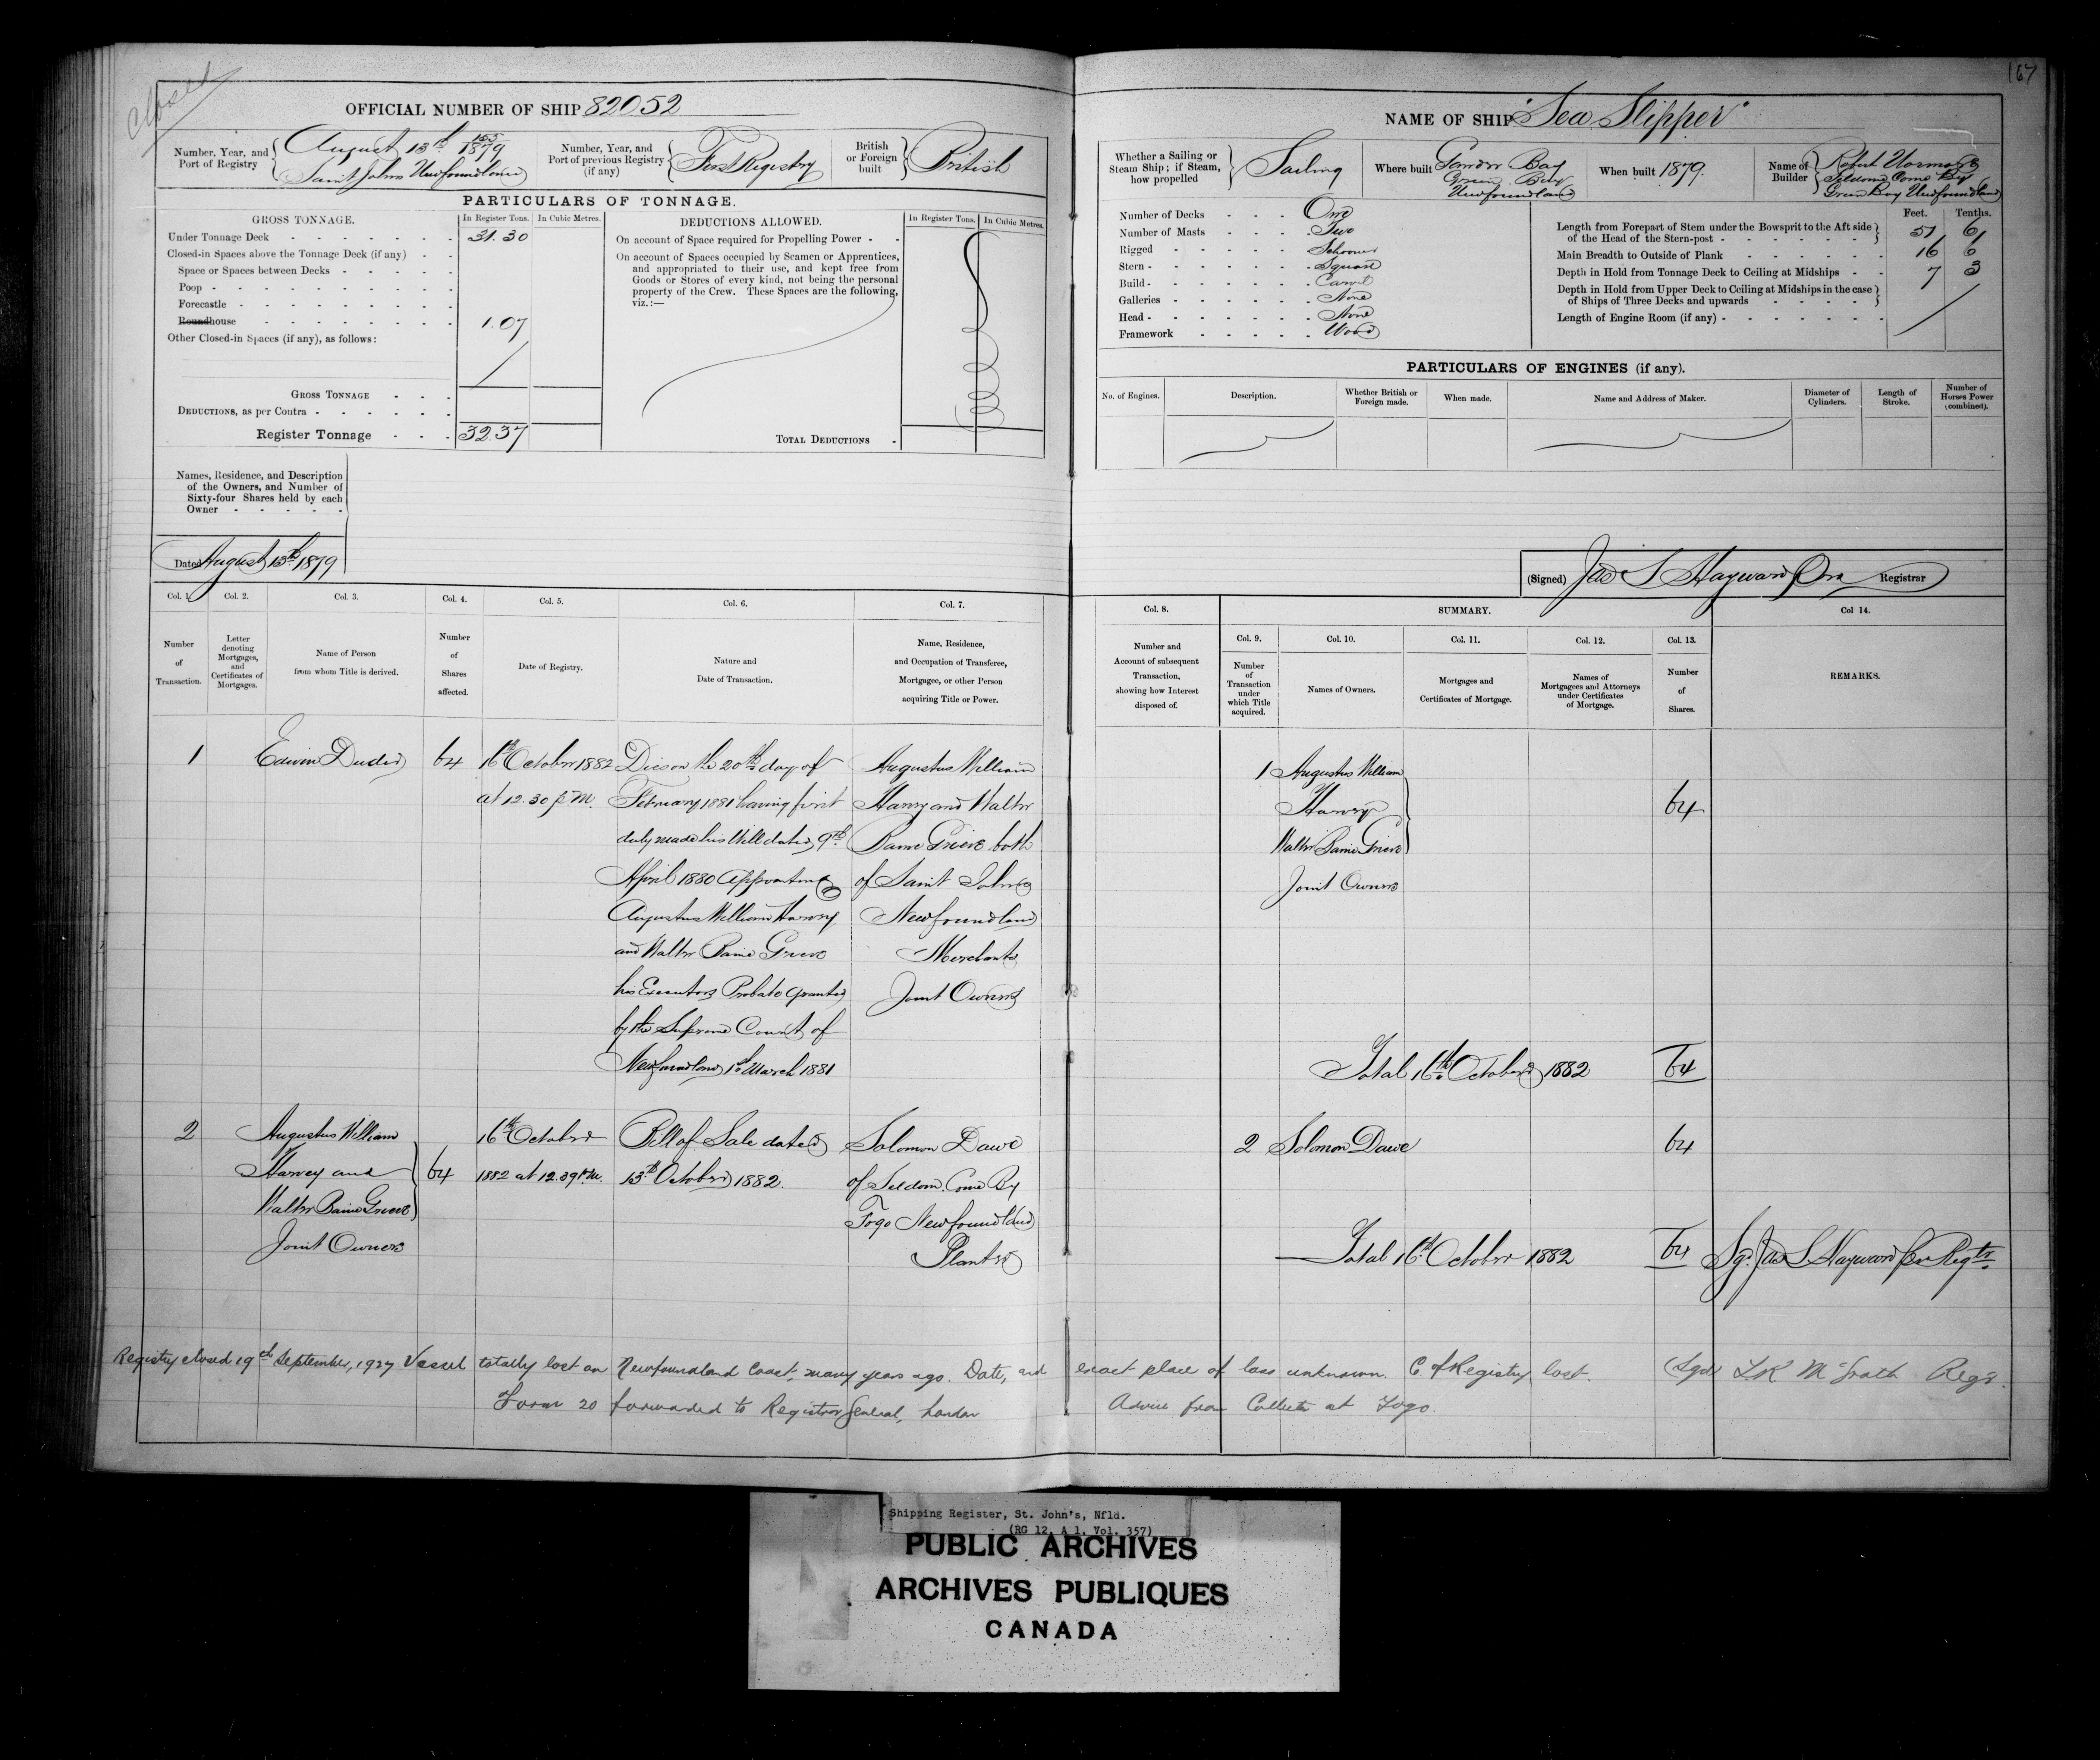 Closed
167
OFFICIAL NUMBER OF SHIP 82052
NAME OF SHIP "Sea Slipper"
Number, Year, and Port of Registry
August 13th 1879
Saint Johns Newfoundland
Number, Year, and Port of previous Registry (if any)
First Registry
British or Foreign built
British
Whether a Sailing or Steam Ship; if Steam, how propelled
Sailing
Where built Gander Bay
Green Bay
Newfoundland
When built 1879.
Name of Builder
Robert
Seldom Come By
Green Bay Newfoundland
PARTICULARS OF TONNAGE.
GROSS TONNAGE.
In Register Tons.
In Cubic Metres.
Under Tonnage Deck 31.30
Closed-in Spaces above the Tonnage Deck (if any)
Space or Spaces between Decks
Poop
Forecastle
Roundhouse 1.07
Other Closed-in Spaces (if any), as follows:
GROSS TONNAGE
DEDUCTIONS, as per Contra
Register Tonnage 32.37
DEDUCTIONS ALLOWED.
In Register Tons.
In Cubic Metres.
On account of Space required for Propelling Power
On account of Spaces occupied by Seamen or Apprentices,
and appropriated to their use, and kept free from
Goods or Stores of every kind, not being the personal
property of the Crew. These Spaces are the following,
viz.:—
TOTAL DEDUCTIONS
Number of Decks One
Number of Masts Two
Rigged Schooner
Stern Square
Build Carvel
Galleries None
Head None
Framework Wood
Feet. Tenths.
Length from Forepart of Stem under the Bowsprit to the Aft side of the Head of the Stern-post 51 6
Main Breadth to Outside of Plank 16 6
Depth in Hold from Tonnage Deck to Ceiling at Midships 7 3
Depth in Hold from Upper Deck to Ceiling at Midships in the case of Ships of Three Decks and upwards
Length of Engine Room (if any)
PARTICULARS OF ENGINES (if any).
No. of Engines.
Description.
Whether British or Foreign made.
When made.
Name and Address of Maker.
Diameter of Cylinders.
Length of Stroke.
Number of Horses Power (combined).
Names, Residence, and Description
of the Owners, and Number of
Sixty-four Shares held by each
Owner
Dated August 13th 1879
(Signed) Jas S Hayward Registrar
Col. 1. Col. 2. Col. 3. Col. 4. Col. 5. Col. 6. Col. 7.
Number of Transaction.
Letter denoting Mortgages, and Certificates of Mortgages.
Name of Person from whom Title is derived.
Number of Shares affected.
Date of Registry.
Nature and Date of Transaction.
Name, Residence, and Occupation of Transferee, Mortgagee, or other Person acquiring Title or Power.
Col. 8.
Number and Account of subsequent Transaction, showing how Interest disposed of.
SUMMARY.
Col. 9. Col. 10. Col. 11. Col. 12. Col. 13. Col 14.
Number of Transaction under which Title acquired.
Names of Owners.
Mortgages and Certificates of Mortgage.
Names of Mortgagees and Attorneys under Certificates of Mortgage.
Number of Shares.
REMARKS.
1
Edwin Duder
64
16th October 1882
at 12.30 p.M.
Dies on the 20th day of
February 1881 having first
duly made his Will dated 9th
April 1880 Appointing
Augustus William Harvey
and Walter Baine Grieve
his Executors Probate granted
by the Supreme Court of
Newfoundland 1st March 1881
Augustus William
Harvey and Walter
Baine Grieve both
of Saint Johns
Newfoundland
Merchants
Joint Owners
1 Augustus William
Harvey
Walter Baine Grieve
Joint Owners
64
Total 16th October 1882 64
2
Augustus William
Harvey and
Walter Baine Grieve
Joint Owners
64
16th October
1882 at 12.39 P.M.
Bill of Sale dated
13th October 1882.
Solomon Dawe
of Seldom Come By
Fogo Newfoundland
Planter
2 Solomon Dawe 64
Total 16th October 1882 64
Sgd. Jas S Hayward Regtr.
Registry closed 19th September, 1927 Vessel totally lost on Newfoundland Coast, many years ago. Date, and exact place of loss unknown. C of Registry lost. (Sgd) McGrath Regr.
Form 20 forwarded to Registrar General, London Advice from Collector at Fogo.
Shipping Register, St. John's, Nfld.
(RG 12, A 1, Vol. 357)
PUBLIC ARCHIVES
ARCHIVES PUBLIQUES
CANADA